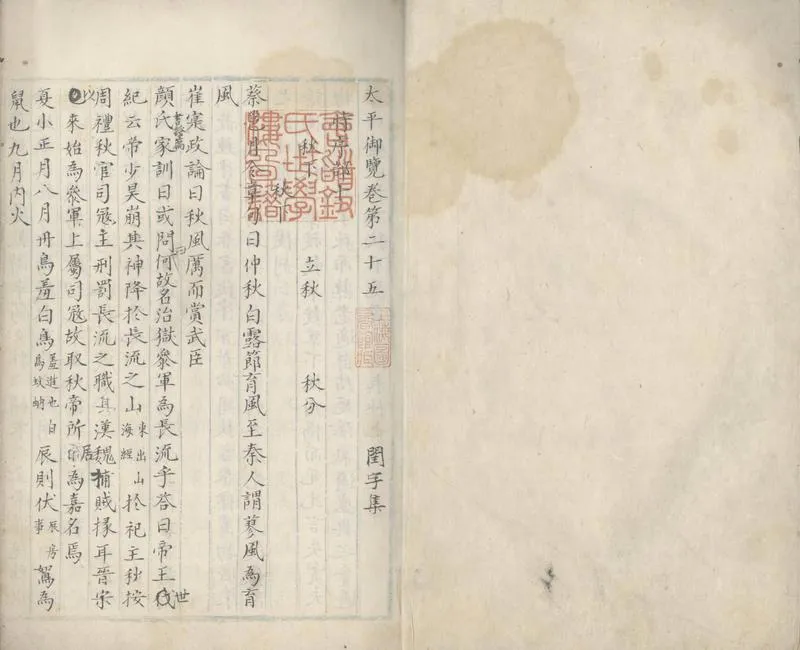 太平御覽卷第二十五 閏字集
時序部十
秋下 立秋 秋分
秋下
蔡邕月令章句曰仲秋白露節育風至秦人謂蓼風為育
風
崔寔政論曰秋風厲而賞武臣
顏氏家訓書證篇曰或問何故名治獄叅軍為長流乎答曰帝王世
紀云帝少昊崩其神降於長流之山東出山海經於祀主秋按
周禮秋官司寇主刑罰長流之職其漢魏捕賊掾耳晉宋
以來始為叅軍上屬司寇故取秋帝所居為嘉名焉
夏小正月八月丹鳥羞白鳥羞進也白鳥蚊蚋辰則伏辰房事鴽為
鼠也九月內火